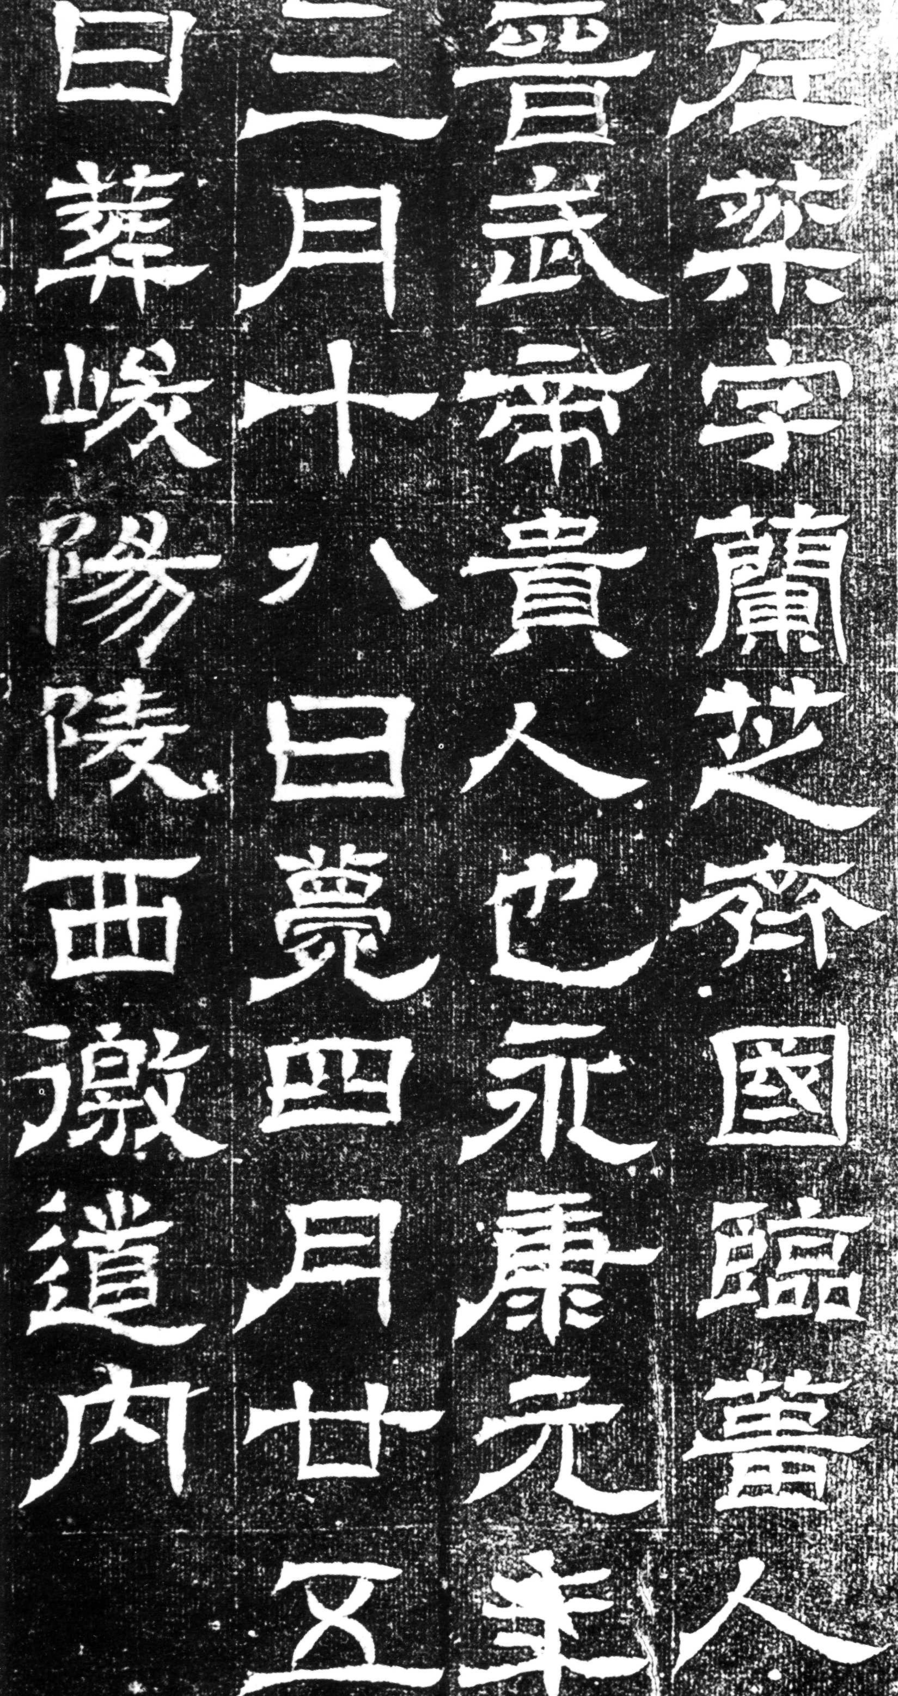 左棻字蘭芝齊國臨菑人
晉武帝貴人也永康元年
三月十八日薨四月廿五
日葬峻陽陵西徼道內